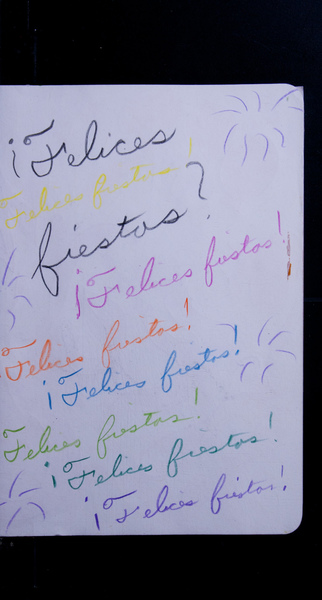 ¡Felices
Felices fiestas!
fiestas?
¡Felices fiestas!
Felices fiestas!
¡Felices fiestas!
Felices fiestas!
¡Felices fiestas!
¡Felices fiestas!